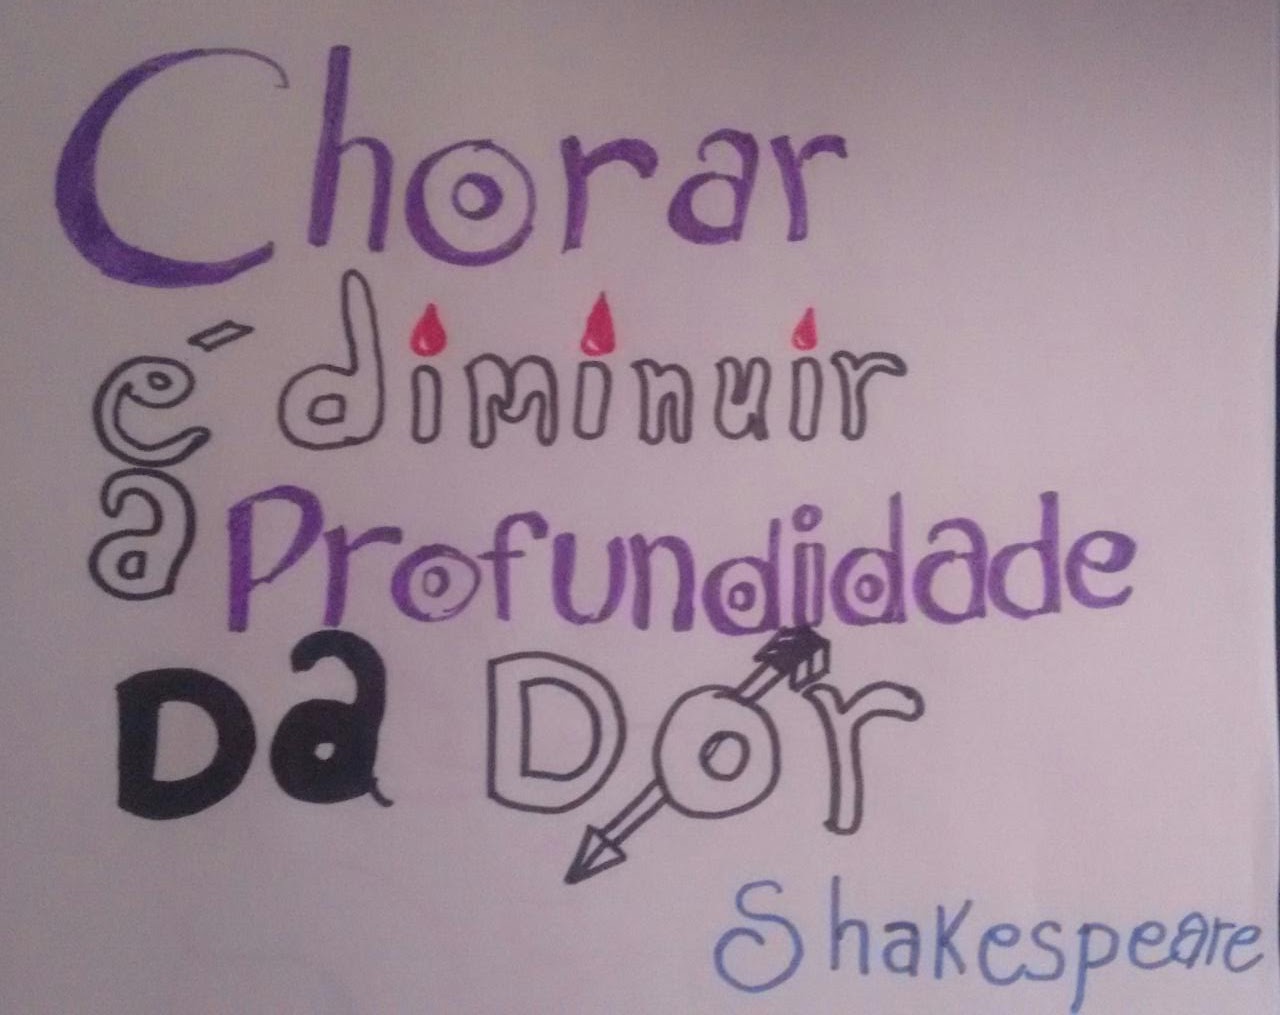 Chorar
é diminuir
a Profundidade
Da Dor
Shakespeare